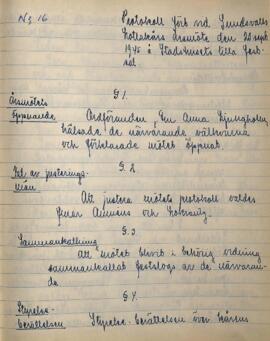 No 16
Protokoll förd vid Sundsvalls
kårs årsmöte den 20 sept
1945 å Stadshusets lilla fest-
sal
§ 1.
Årsmötets
öppnande.
Ordföranden, Fru Anna Ljungholm,
hälsade de närvarande välkomna
och förklarade mötet öppnat.
§ 2
Val av justerings-
män.
Att justera mötets protokoll valdes
fruar och
§ 3
Sammankallning
Att mötet blivit i behörig ordning
sammankallat fastslogs av de närvaran-
de
§ 4.
Styrelse-
berättelsen
Styrelse-berättelsen över kårens